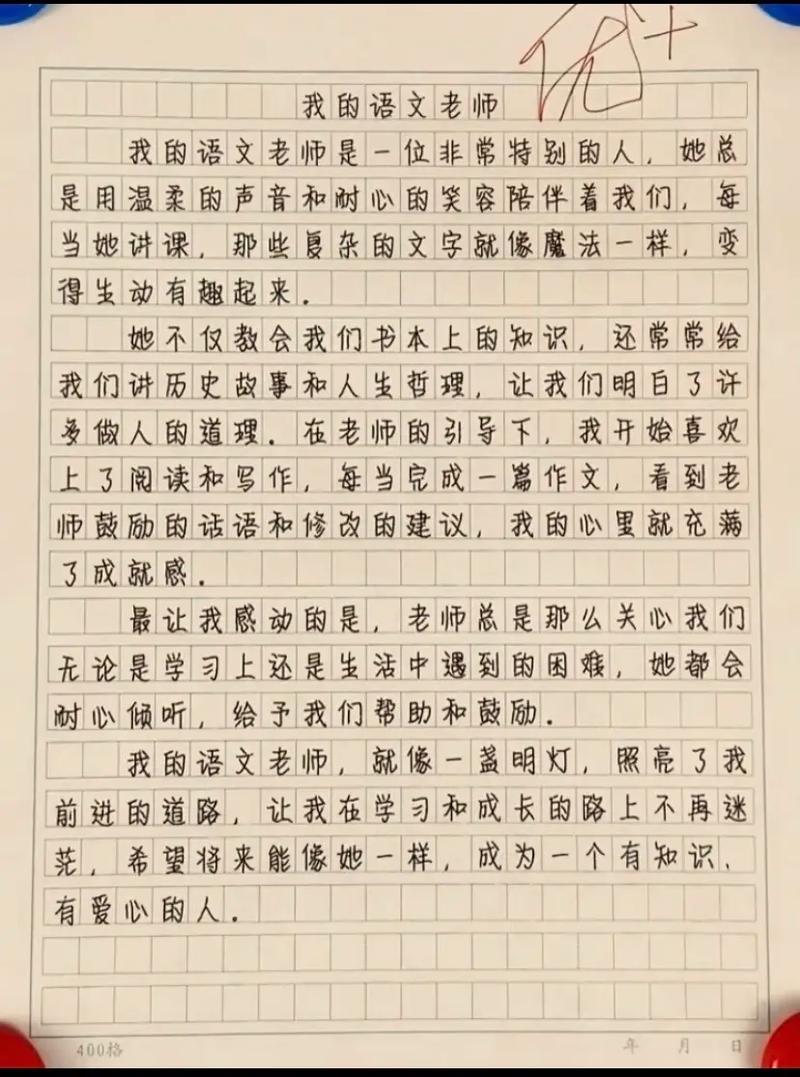 优+
我的语文老师
我的语文老师是一位非常特别的人，她总
是用温柔的声音和耐心的笑容陪伴着我们，每
当她讲课，那些复杂的文字就像魔法一样，变
得生动有趣起来.
她不仅教会我们书本上的知识，还常常给
我们讲历史故事和人生哲理，让我们明白了许
多做人的道理.在老师的引导下，我开始喜欢
上了阅读和写作，每当完成一篇作文，看到老
师鼓励的话语和修改的建议，我的心里就充满
了成就感.
最让我感动的是，老师总是那么关心我们
无论是学习上还是生活中遇到的困难，她都会
耐心倾听，给予我们帮助和鼓励.
我的语文老师，就像一盏明灯，照亮了我
前进的道路，让我在学习和成长的路上不再迷
茫，希望将来能像她一样，成为一个有知识、
有爱心的人.
400格 年 月 日